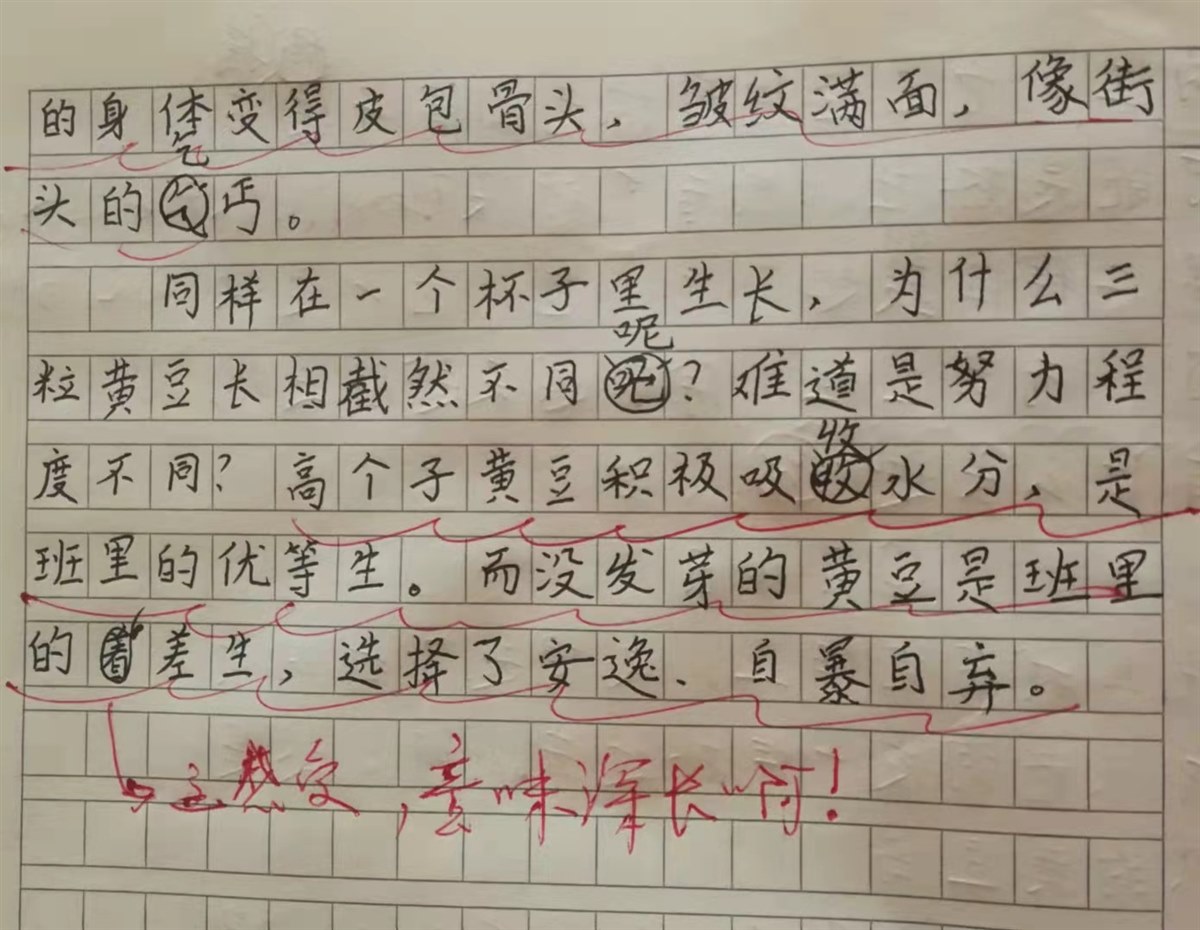 的身体变得皮包骨头，皱纹满面，像街
乞
头的丐。
同样在一个杯子里生长，为什么三
呢
粒黄豆长相截然不同吧？难道是努力程
收
度不同？高个子黄豆积极吸水分，是
班里的优等生。而没发芽的黄豆是班里
的差生，选择了安逸、自暴自弃。
这感受，意味深长啊！